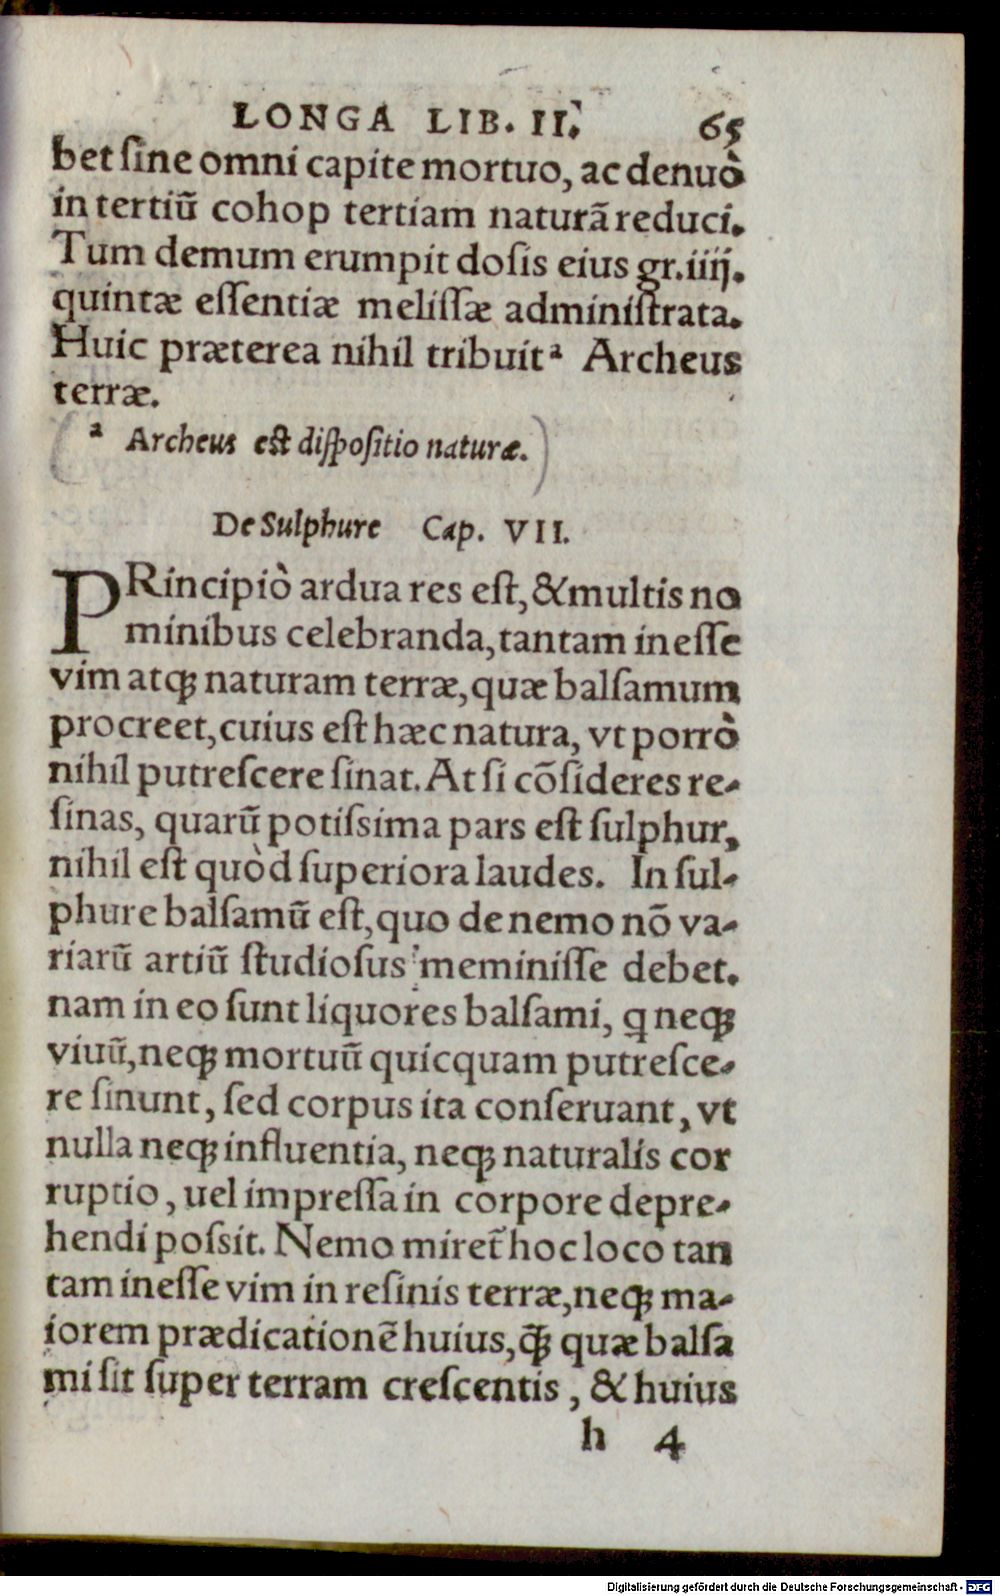 LONGA LIB. II. 65
bet ſine omni capite mortuo, ac denuò
in tertiũ cohop tertiam naturã reduci.
Tum demum erumpit doſis eius gr.iiij.
quintæ eſſentiæ meliſſæ adminiſtrata.
Huic præterea nihil tribuit ᵃ Archeus
terræ.
ᵃ Archeus eſt diſpoſitio naturæ.
De Sulphure Cap. VII.
PRincipiò ardua res eſt, & multis no
minibus celebranda, tantam ineſſe
vim atq; naturam terræ, quæ balſamum
procreet, cuius eſt hæc natura, vt porrò
nihil putreſcere ſinat. At ſi cõſideres re-
ſinas, quarũ potiſsima pars eſt ſulphur,
nihil eſt quòd ſuperiora laudes. In ſul-
phure balſamũ eſt, quo de nemo nõ va-
riarũ artiũ ſtudioſus meminiſſe debet.
nam in eo ſunt liquores balſami, q neq;
viuũ, neq; mortuũ quicquam putreſce-
re ſinunt, ſed corpus ita conſeruant, vt
nulla neq; influentia, neq; naturalis cor
ruptio, uel impreſſa in corpore depre-
hendi poſsit. Nemo miret᷑ hoc loco tan
tam ineſſe vim in reſinis terræ, neq; ma-
iorem prædicationẽ huius, q̃; quæ balſa
mi ſit ſuper terram creſcentis, & huius
h 4
Digitalisierung gefördert durch die Deutsche Forschungsgemeinschaft - DFG